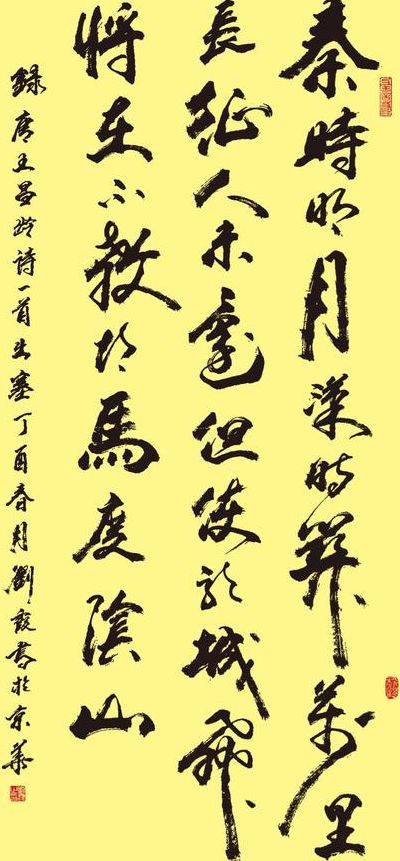 秦時明月漢時關萬里
長征人未還但使龍城飛
將在不教胡馬度陰山
錄唐王昌齡詩一首出塞丁酉春月劉書於京華